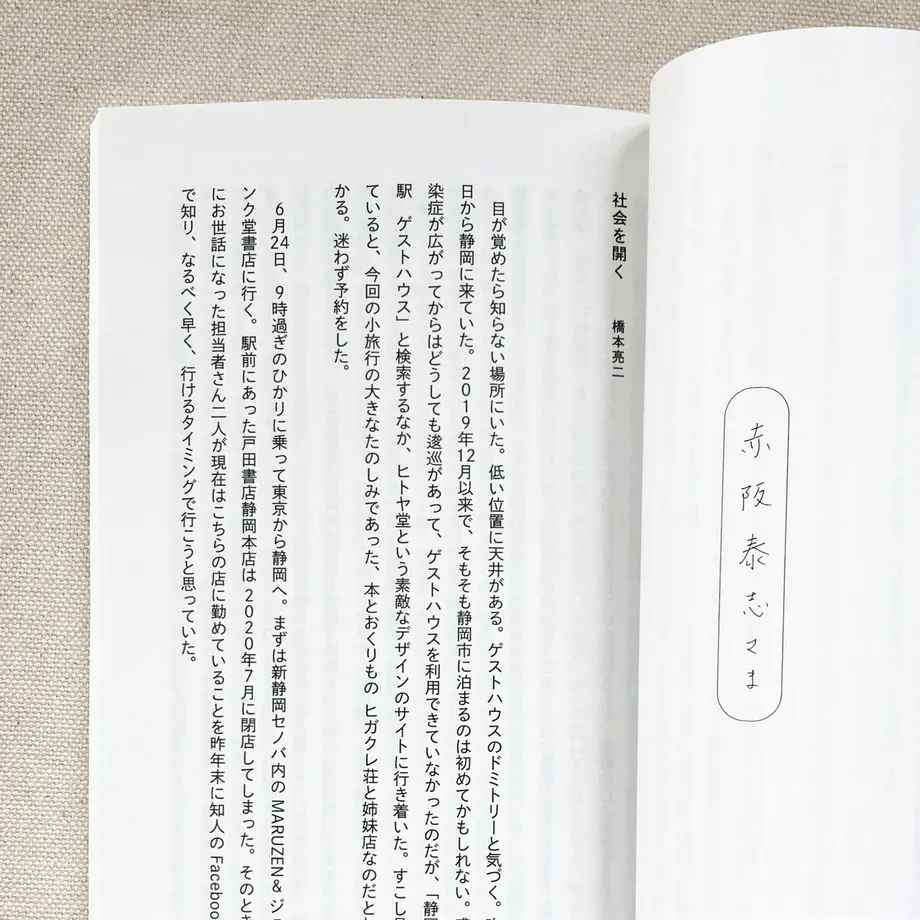 赤阪泰志さま
社会を開く　橋本亮二
目が覚めたら知らない場所にいた。低い位置に天井がある。ゲストハウスのドミトリーと気づく。
日から静岡に来ていた。2019年12月以来で、そもそも静岡市に泊まるのは初めてかもしれない。
染症が広がってからはどうしても逡巡があって、ゲストハウスを利用できていなかったのだが、「静
駅　ゲストハウス」と検索するなか、ヒトヤ堂という素敵なデザインのサイトに行き着いた。すこし
ていると、今回の小旅行の大きなたのしみであった、本とおくりもの ヒガクレ荘と姉妹店なのだと
かる。迷わず予約をした。
6月24日、9時過ぎのひかりに乗って東京から静岡へ。まずは新静岡セノバ内の MARUZEN＆ジュ
ンク堂書店に行く。駅前にあった戸田書店静岡本店は2020年7月に閉店してしまった。そのとき
にお世話になった担当者さん二人が現在はこちらの店に勤めていることを昨年末に知人の Faceboo
で知り、なるべく早く、行けるタイミングで行こうと思っていた。